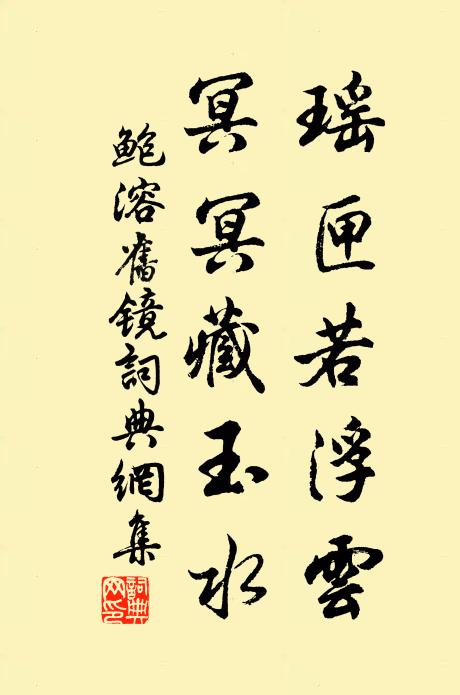 瑶匣若浮雲
冥冥藏玉水
鲍溶舊镜詞典網集
詞典网印